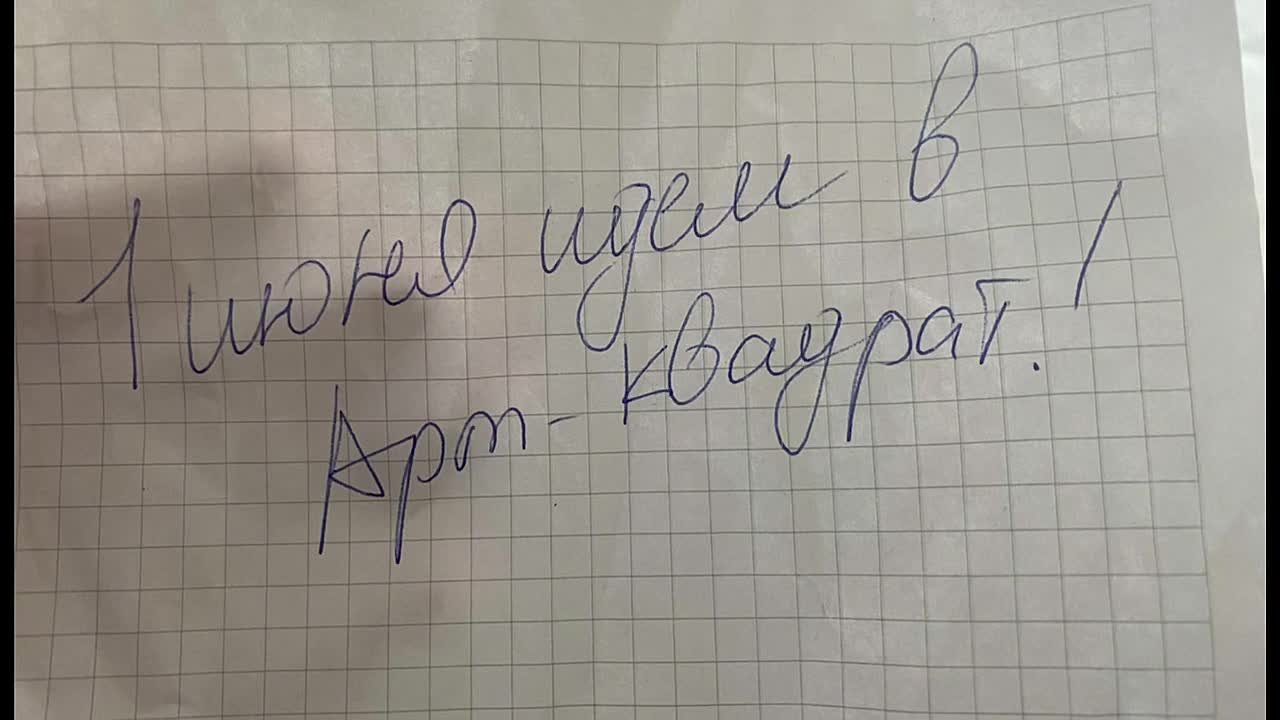 1 июня идем в
Арт-квадрат!